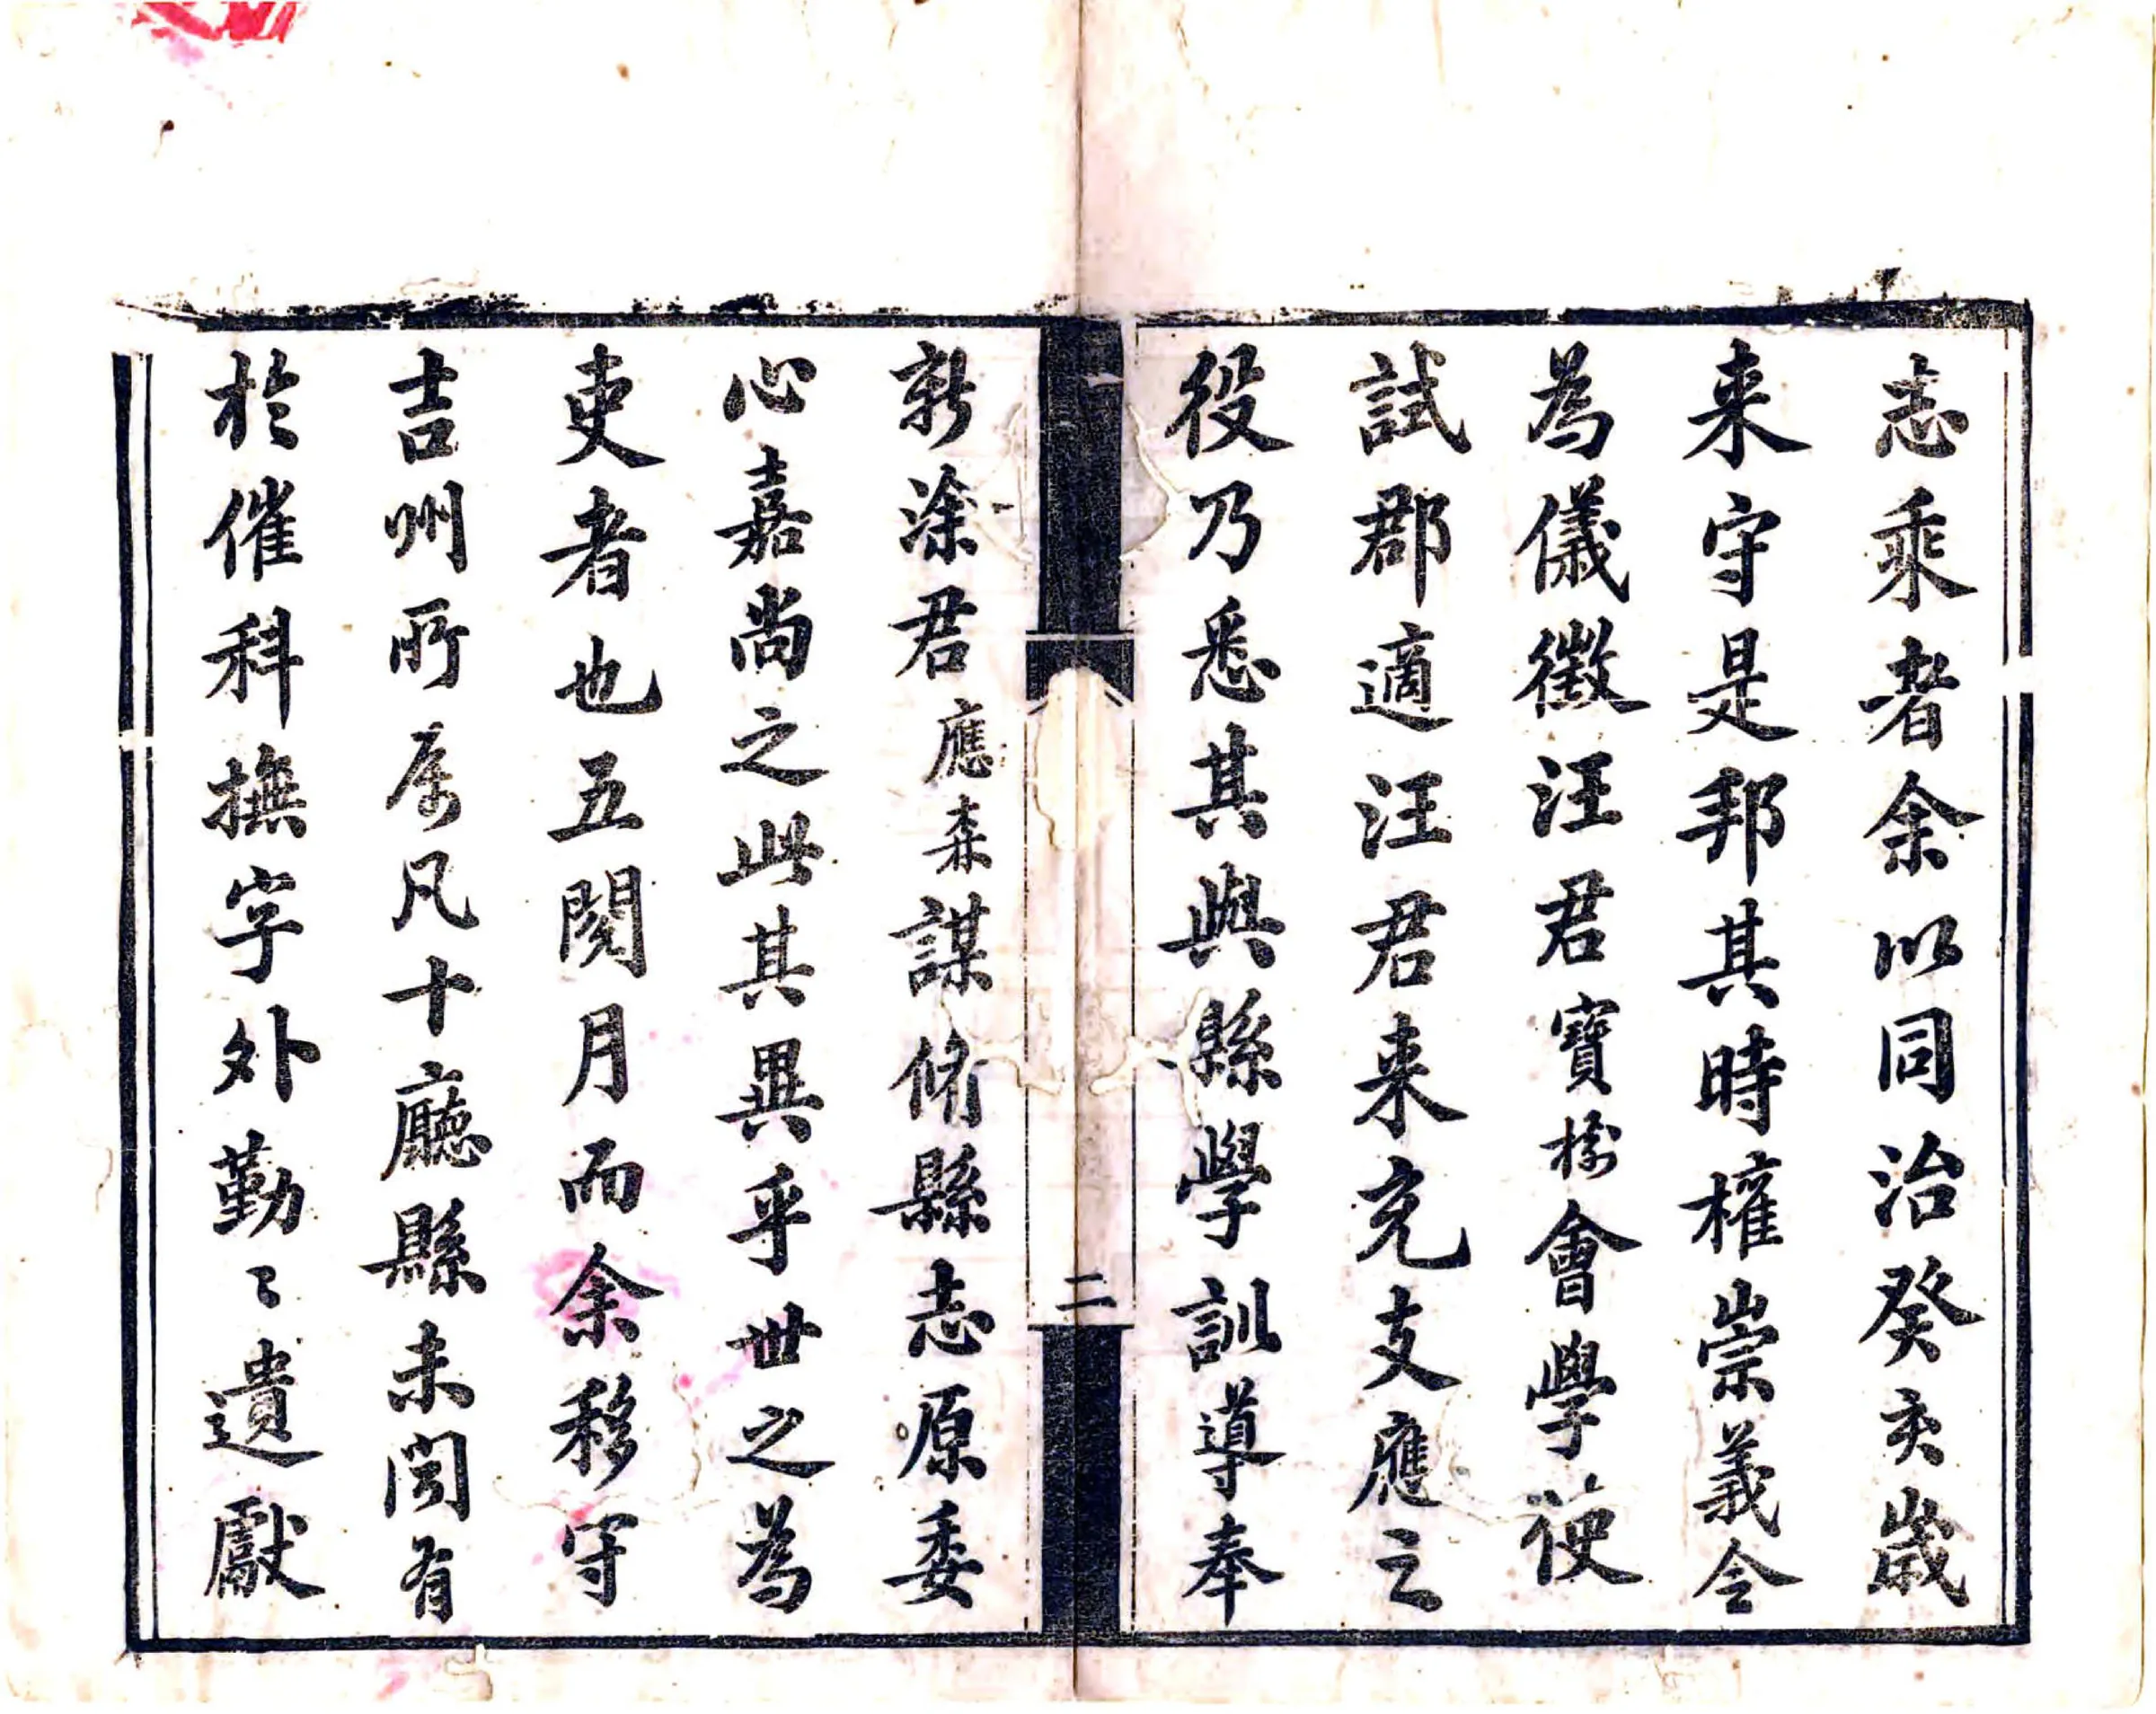 志乘者余以同治癸亥歲
来守是邦其時權崇義令
為儀徵汪君寶𣗳會學使
試郡適汪君来充支應之
役乃悉其與縣學訓導奉
新涂君應森謀脩縣志原委
心嘉尚之此其異乎世之為
吏者也五閱月而余移守
吉州所属凡十廳縣未聞有
於催科撫字外勤〻遺獻
二